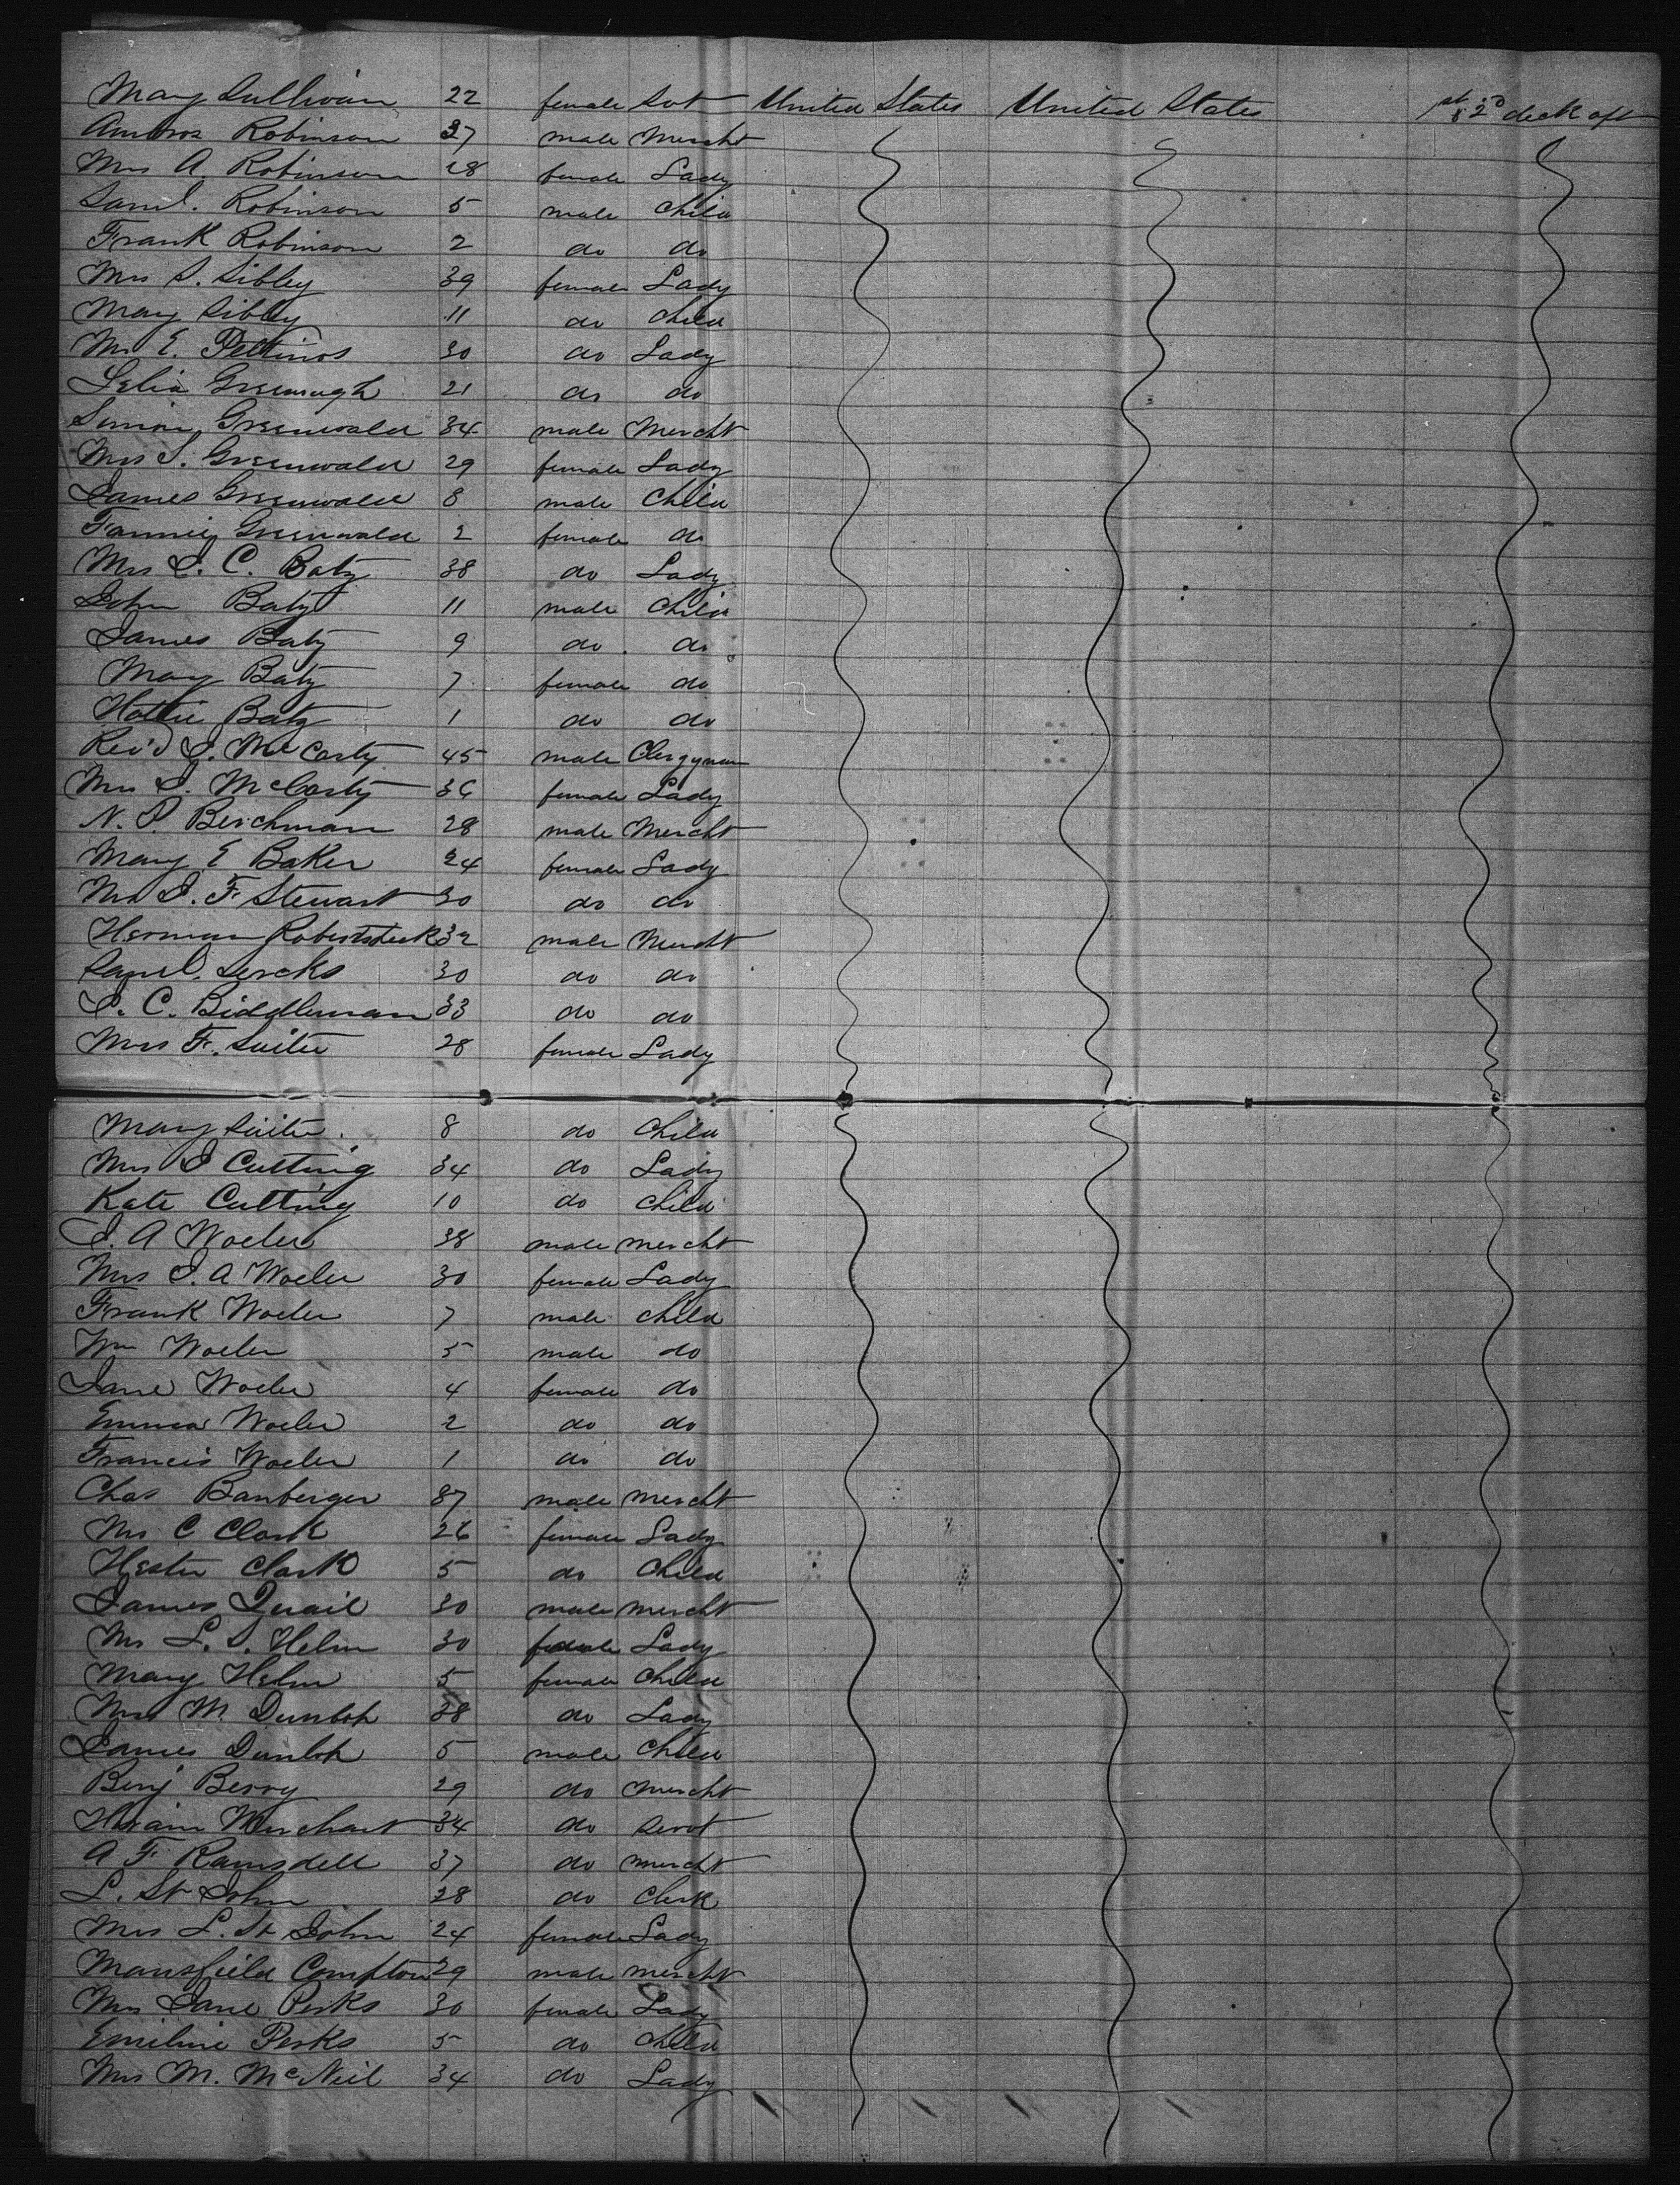 Mary Sullivan 22 female Svt United States United States 1st & 2d deck aft
Ambros Robinson 37 male Mercht
Mrs A. Robinson 28 female Lady
Saml. Robinson 5 male Child
Frank Robinson 2 do do
Mrs S. Sibley 39 female Lady
Mary Sibley 11 do Child
Mrs E. Peltinos 30 do Lady
Lelia Greenough 21 do do
Simon Greenwald 34 male Mercht
Mrs S. Greenwald 29 female Lady
James Greenwald 8 male Child
Fannie Greenwald 2 female do
Mrs J. C. Batz 38 do Lady
John Batz 11 male Child
James Batz 9 do do
Mary Batz 7 female do
Hattie Batz 1 do do
Rev'd J. McCarty 45 male Clergyman
Mrs J. McCarty 36 female Lady
N. S. Berchman 28 male Mercht
Mary E Baker 24 female Lady
Mrs J. F. Stewart 30 do do
Herman 32 male Mercht
Saml. Lercks 30 do do
S. C. Biddleman 33 do do
Mrs F. Suiter 28 female Lady
Mary Suiter 8 do Child
Mrs J Cutting 34 do Lady
Kate Cutting 10 do Child
J. A Woeler 38 male mercht
Mrs J. A Woeler 30 female Lady
Frank Woeler 7 male child
Wm Woeler 5 male do
Jane Woeler 4 female do
Emma Woeler 2 do do
Francis Woeler 1 do do
Chas Banberger 37 male mercht
Mrs C Clark 26 female Lady
Hester Clark 5 do Child
James Quail 30 male mercht
Mrs L. S. Helm 30 female Lady
Mary Helm 5 female Child
Mrs M. Dunlop 38 do Lady
James Dunlop 5 male Child
Benj Berry 29 do mercht
Hiram Merchant 34 do servt
A F Ramsdell 37 do mercht
L. St John 28 do Clerk
Mrs L. St John 24 female Lady
Mansfield Compton 29 male mercht
Mrs Jane Perks 30 female Lady
Emiline Perks 5 do Child
Mrs M. McNeil 34 do Lady